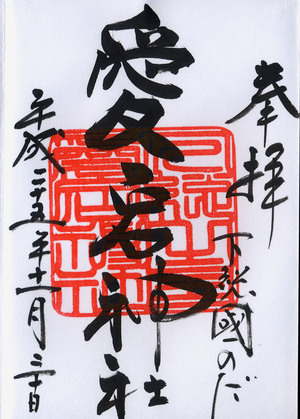 奉拝
下総國のだ
愛宕神社
平成二十五年十一月三十日